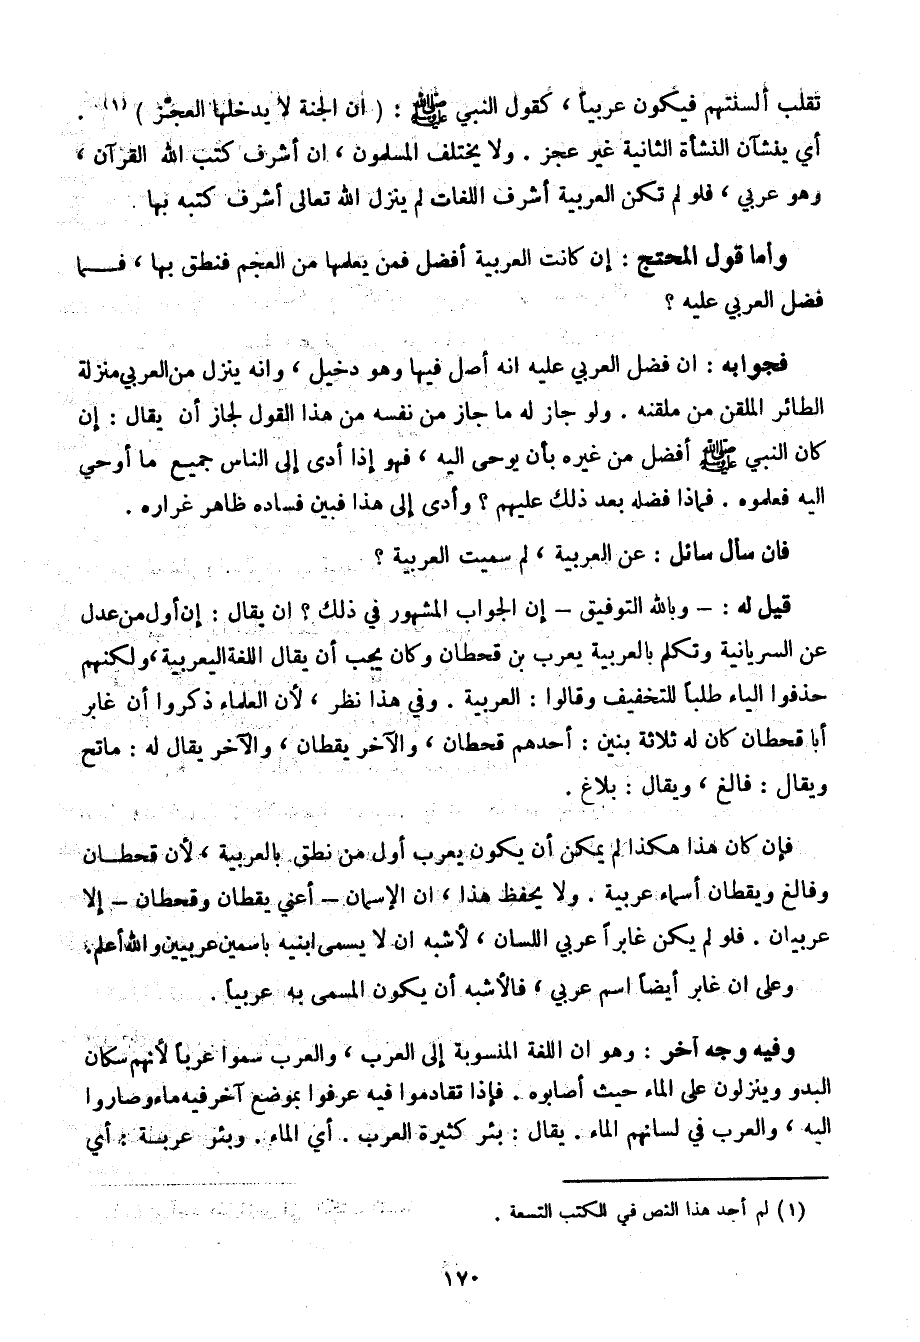 تقلب ألسنتهم فيكون عربياً ، كقول النبي ﷺ : ( ان الجنة لا يدخلها العجّز ) (١) .
أي ينشآن النشأة الثانية غير عجز . ولا يختلف المسلمون ، ان أشرف كتب الله القرآن ،
وهو عربي ، فلو لم تكن العربية أشرف اللغات لم ينزل الله تعالى أشرف كتبه بها .
وأما قول المحتج : إن كانت العربية أفضل فمن يعلمها من العجم فنطق بها ، فــما
فضل العربي عليه ؟
فجوابه : ان فضل العربي عليه انه أصل فيها وهو دخيل ، وانه ينزل من العربي منزلة
الطائر الملقن من ملقنه . ولو جاز له ما جاز من نفسه من هذا القول لجاز أن يقال : إن
كان النبي ﷺ أفضل من غيره بأن يوحى اليه ، فهو إذا أدى إلى الناس جميع ما أوحي
اليه فعلموه . فماذا فضله بعد ذلك عليهم ؟ وأدى إلى هذا فبين فساده ظاهر غراره .
فان سأل سائل : عن العربية ، لم سميت العربية ؟
قيل له : – وبالله التوفيق – إن الجواب المشهور في ذلك ؟ ان يقال : إن أول من عدل
عن السريانية وتكلم بالعربية يعرب بن قحطان وكان يجب أن يقال اللغة اليعربية ، ولكنهم
حذفوا الياء طلباً للتخفيف وقالوا : العربية . وفي هذا نظر ، لأن العلماء ذكروا أن غابر
أبا قحطان كان له ثلاثة بنين : أحدهم قحطان ، والآخر يقطان ، والآخر يقال له : ماتح
ويقال : فالغ ، ويقال : بلاغ .
فإن كان هذا هكذا لم يمكن أن يكون يعرب أول من نطق بالعربية ، لأن قحطـان
وفالغ ويقطان أسماء عربية . ولا يحفظ هذا ، ان الإسمان – أعني يقطان وقحطان – إلا
عربيان . فلو لم يكن غابراً عربي اللسان ، لأشبه ان لا يسمى ابنيه باسمين عربيين والله أعلم .
وعلى ان غابر أيضاً اسم عربي ، فالأشبه أن يكون المسمى به عربياً .
وفيه وجه آخر : وهو ان اللغة المنسوبة إلى العرب ، والعرب سموا عرباً لأنهم سكان
البدو وينزلون على الماء حيث أصابوه . فإذا تقادموا فيه عرفوا بموضع آخر فيه ماء وصاروا
اليه ، والعرب في لسانهم الماء . يقال : بئر كثيرة العرب . أي الماء . وبئر عربـة : أي
(١) لم أجد هذا النص في الكتب التسعة .
١٧٠